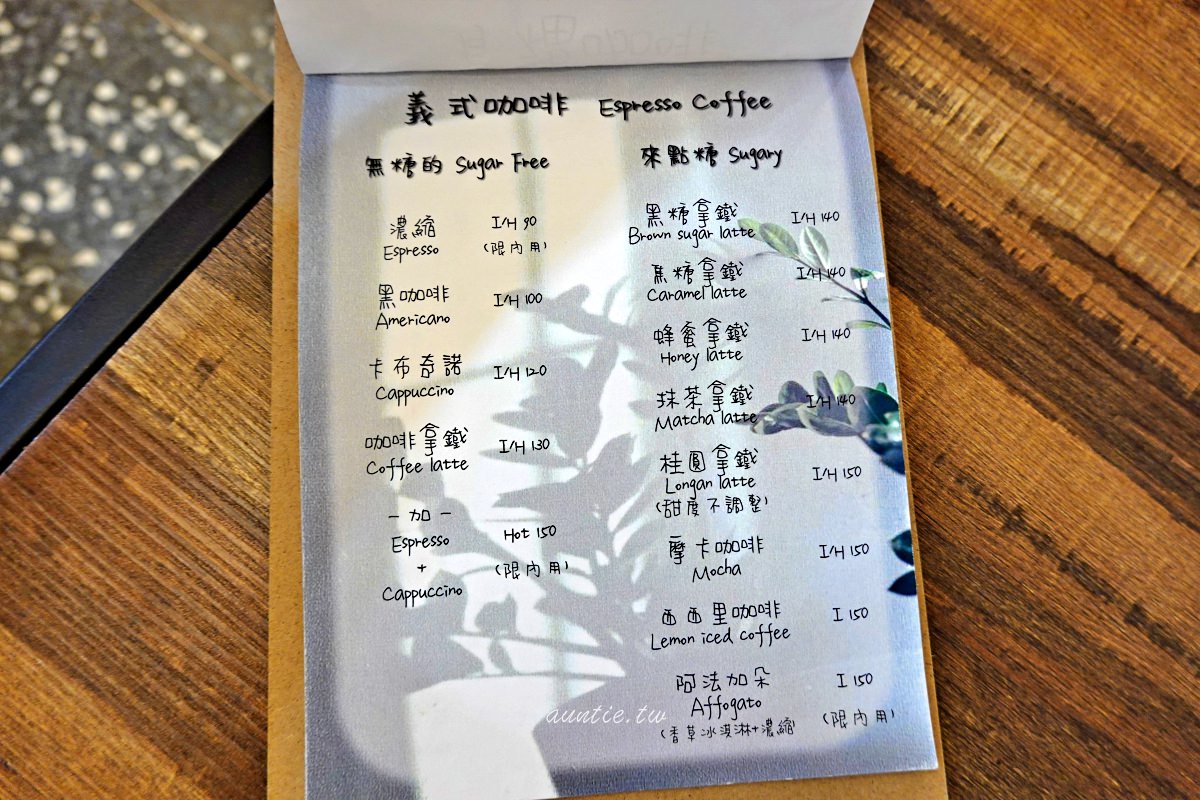 義式咖啡 Espresso Coffee
無糖的 Sugar Free
濃縮 I/H 90
Espresso (限內用)
黑咖啡 I/H 100
Americano
卡布奇諾 I/H 120
Cappuccino
咖啡拿鐵 I/H 130
Coffee latte
一加一
Espresso Hot 150
+ (限內用)
Cappuccino
來點糖 Sugary
黑糖拿鐵 I/H 140
Brown sugar latte
焦糖拿鐵 I/H 140
Caramel latte
蜂蜜拿鐵 I/H 140
Honey latte
抹茶拿鐵 I/H 140
Matcha latte
桂圓拿鐵 I/H 150
Longan latte
(甜度不調整)
摩卡咖啡 I/H 150
Mocha
西西里咖啡 I 150
Lemon iced coffee
阿法加朵 I 150
Affogato
(香草冰淇淋+濃縮) (限內用)
auntie.tw